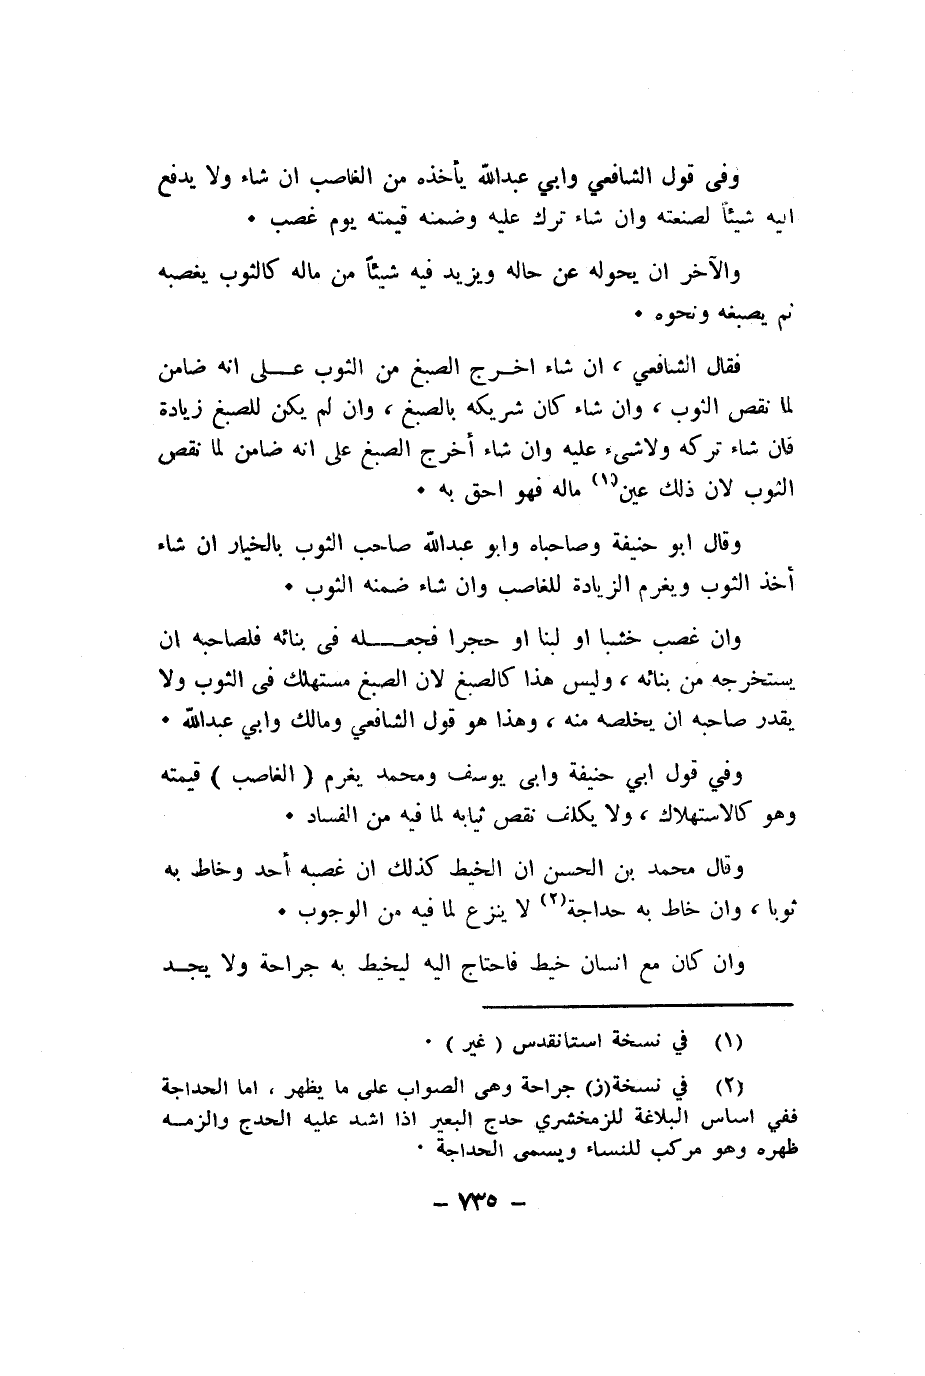 وفى قول الشافعي وابي عبدالله يأخذه من الغاصب ان شاء ولا يدفع
اليه شيئاً لصنعته وان شاء ترك عليه وضمنه قيمته يوم غصب ٠
والآخر ان يحوله عن حاله ويزيد فيه شيئاً من ماله كالثوب يغصبه
ثم يصبغه ونحوه ٠
فقال الشافعي ، ان شاء اخرج الصبغ من الثوب على انه ضامن
لما نقص الثوب ، وان شاء كان شريكه بالصبغ ، وان لم يكن للصبغ زيادة
فان شاء تركه ولاشىء عليه وان شاء أخرج الصبغ على انه ضامن لما نقص
الثوب لان ذلك عين(١) ماله فهو احق به ٠
وقال ابو حنيفة وصاحباه وابو عبدالله صاحب الثوب بالخيار ان شاء
أخذ الثوب ويغرم الزيادة للغاصب وان شاء ضمنه الثوب ٠
وان غصب خشبا او لبنا او حجرا فجعله فى بنائه فلصاحبه ان
يستخرجه من بنائه ، وليس هذا كالصبغ لان الصبغ مستهلك فى الثوب ولا
يقدر صاحبه ان يخلصه منه ، وهذا هو قول الشافعي ومالك وابي عبدالله ٠
وفي قول ابي حنيفة وابى يوسف ومحمد يغرم ( الغاصب ) قيمته
وهو كالاستهلاك ، ولا يكلف نقص ثيابه لما فيه من الفساد ٠
وقال محمد بن الحسن ان الخيط كذلك ان غصبه أحد وخاط به
ثوبا ، وان خاط به حداجة(٢) لا ينزع لما فيه من الوجوب ٠
وان كان مع انسان خيط فاحتاج اليه ليخيط به جراحة ولا يجد
(١) في نسخة استانقدس ( غير ) ٠
(٢) في نسخة(ز) جراحة وهى الصواب على ما يظهر ، اما الحداجة
ففي اساس البلاغة للزمخشري حدج البعير اذا اشد عليه الحدج والزمه
ظهره وهو مركب للنساء ويسمى الحداجة ٠
– ٧٣٥ –